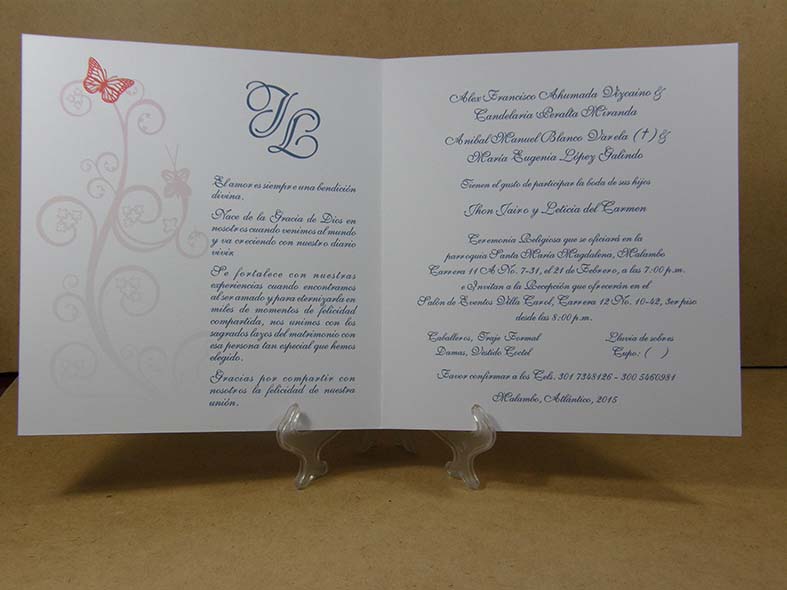 JL
El amor es siempre una bendición
divina.
Nace de la Gracia de Dios en
nosotros cuando venimos al mundo
y va creciendo con nuestro diario
vivir.
Se fortalece con nuestras
experiencias cuando encontramos
al ser amado y para eternizarla en
miles de momentos de felicidad
compartida, nos unimos con los
sagrados lazos del matrimonio con
esa persona tan especial que hemos
elegido.
Gracias por compartir con
nosotros la felicidad de nuestra
unión.
Alex Francisco Ahumada Vizcaino &
Candelaria Peralta Miranda
Anibal Manuel Blanco Varela (†) &
María Eugenia López Galindo
Tienen el gusto de participar la boda de sus hijos
Jhon Jairo y Leticia del Carmen
Ceremonia Religiosa que se oficiará en la
parroquia Santa María Magdalena, Malambo
Carrera 11 A No. 7-31, el 21 de Febrero, a las 7:00 p.m.
e Invitan a la Recepción que ofrecerán en el
Salón de Eventos Villa Carol, Carrera 12 No. 10-42, 3er piso
desde las 8:00 p.m.
Caballeros, Traje Formal Lluvia de sobres
Damas, Vestido Coctel Cupo: ( )
Favor confirmar a los Cels. 301 7348126 - 300 5460981
Malambo, Atlántico, 2015